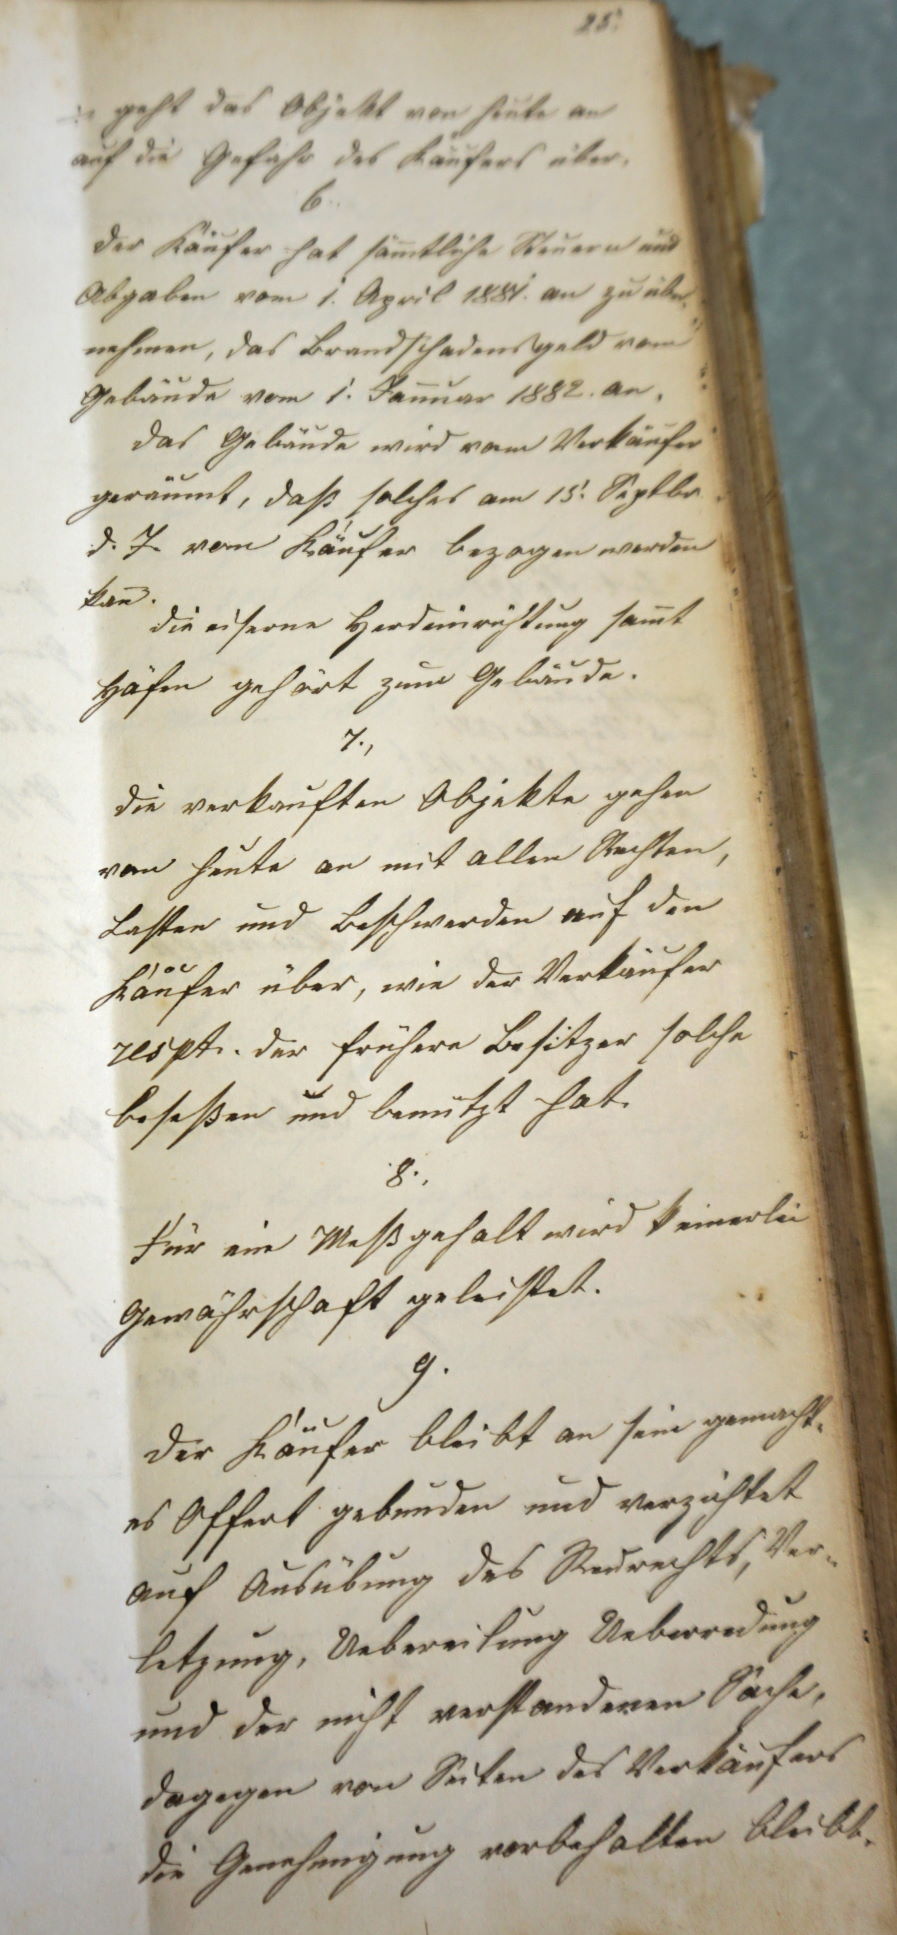 25.
geht das Objekt von heute an
auf die Gefahr des Käufers über.
6.
Der Käufer hat sämtliche Steuern und
Abgaben vom 1. April 1881. an zu über-
nehmen, das Brandschadensgeld vom
Gebäude vom 1. Januar 1882. an.
Das Gebäude wird vom Verkäufer
geräumt, daß solches am 15. Septbr
d. J. vom Käufer bezogen werden
kan̅.
Die eiserne Herdeinrichtung sam̅t
Häfen gehört zum Gebäude.
7.,
Die verkauften Objekte gehen
von heute an mit allen Rechten,
Lasten und Beschwerden auf den
Käufer über, wie der Verkäufer
respt. der frühere Besitzer solche
beseßen und benützt hat.
8.,
Für ein Meßgehalt wird keinerlei
Gewährschaft geleistet.
9.
Der Käufer bleibt an sein gemacht-
es Offert gebunden und verzichtet
auf Ausübung des Reurechts, Ver-
letzung, Uebereilung Ueberredung
und der nicht verstandenen Sache,
dagegen von Seiten des Verkäufers
die Genehmigung vorbehalten bleibt.